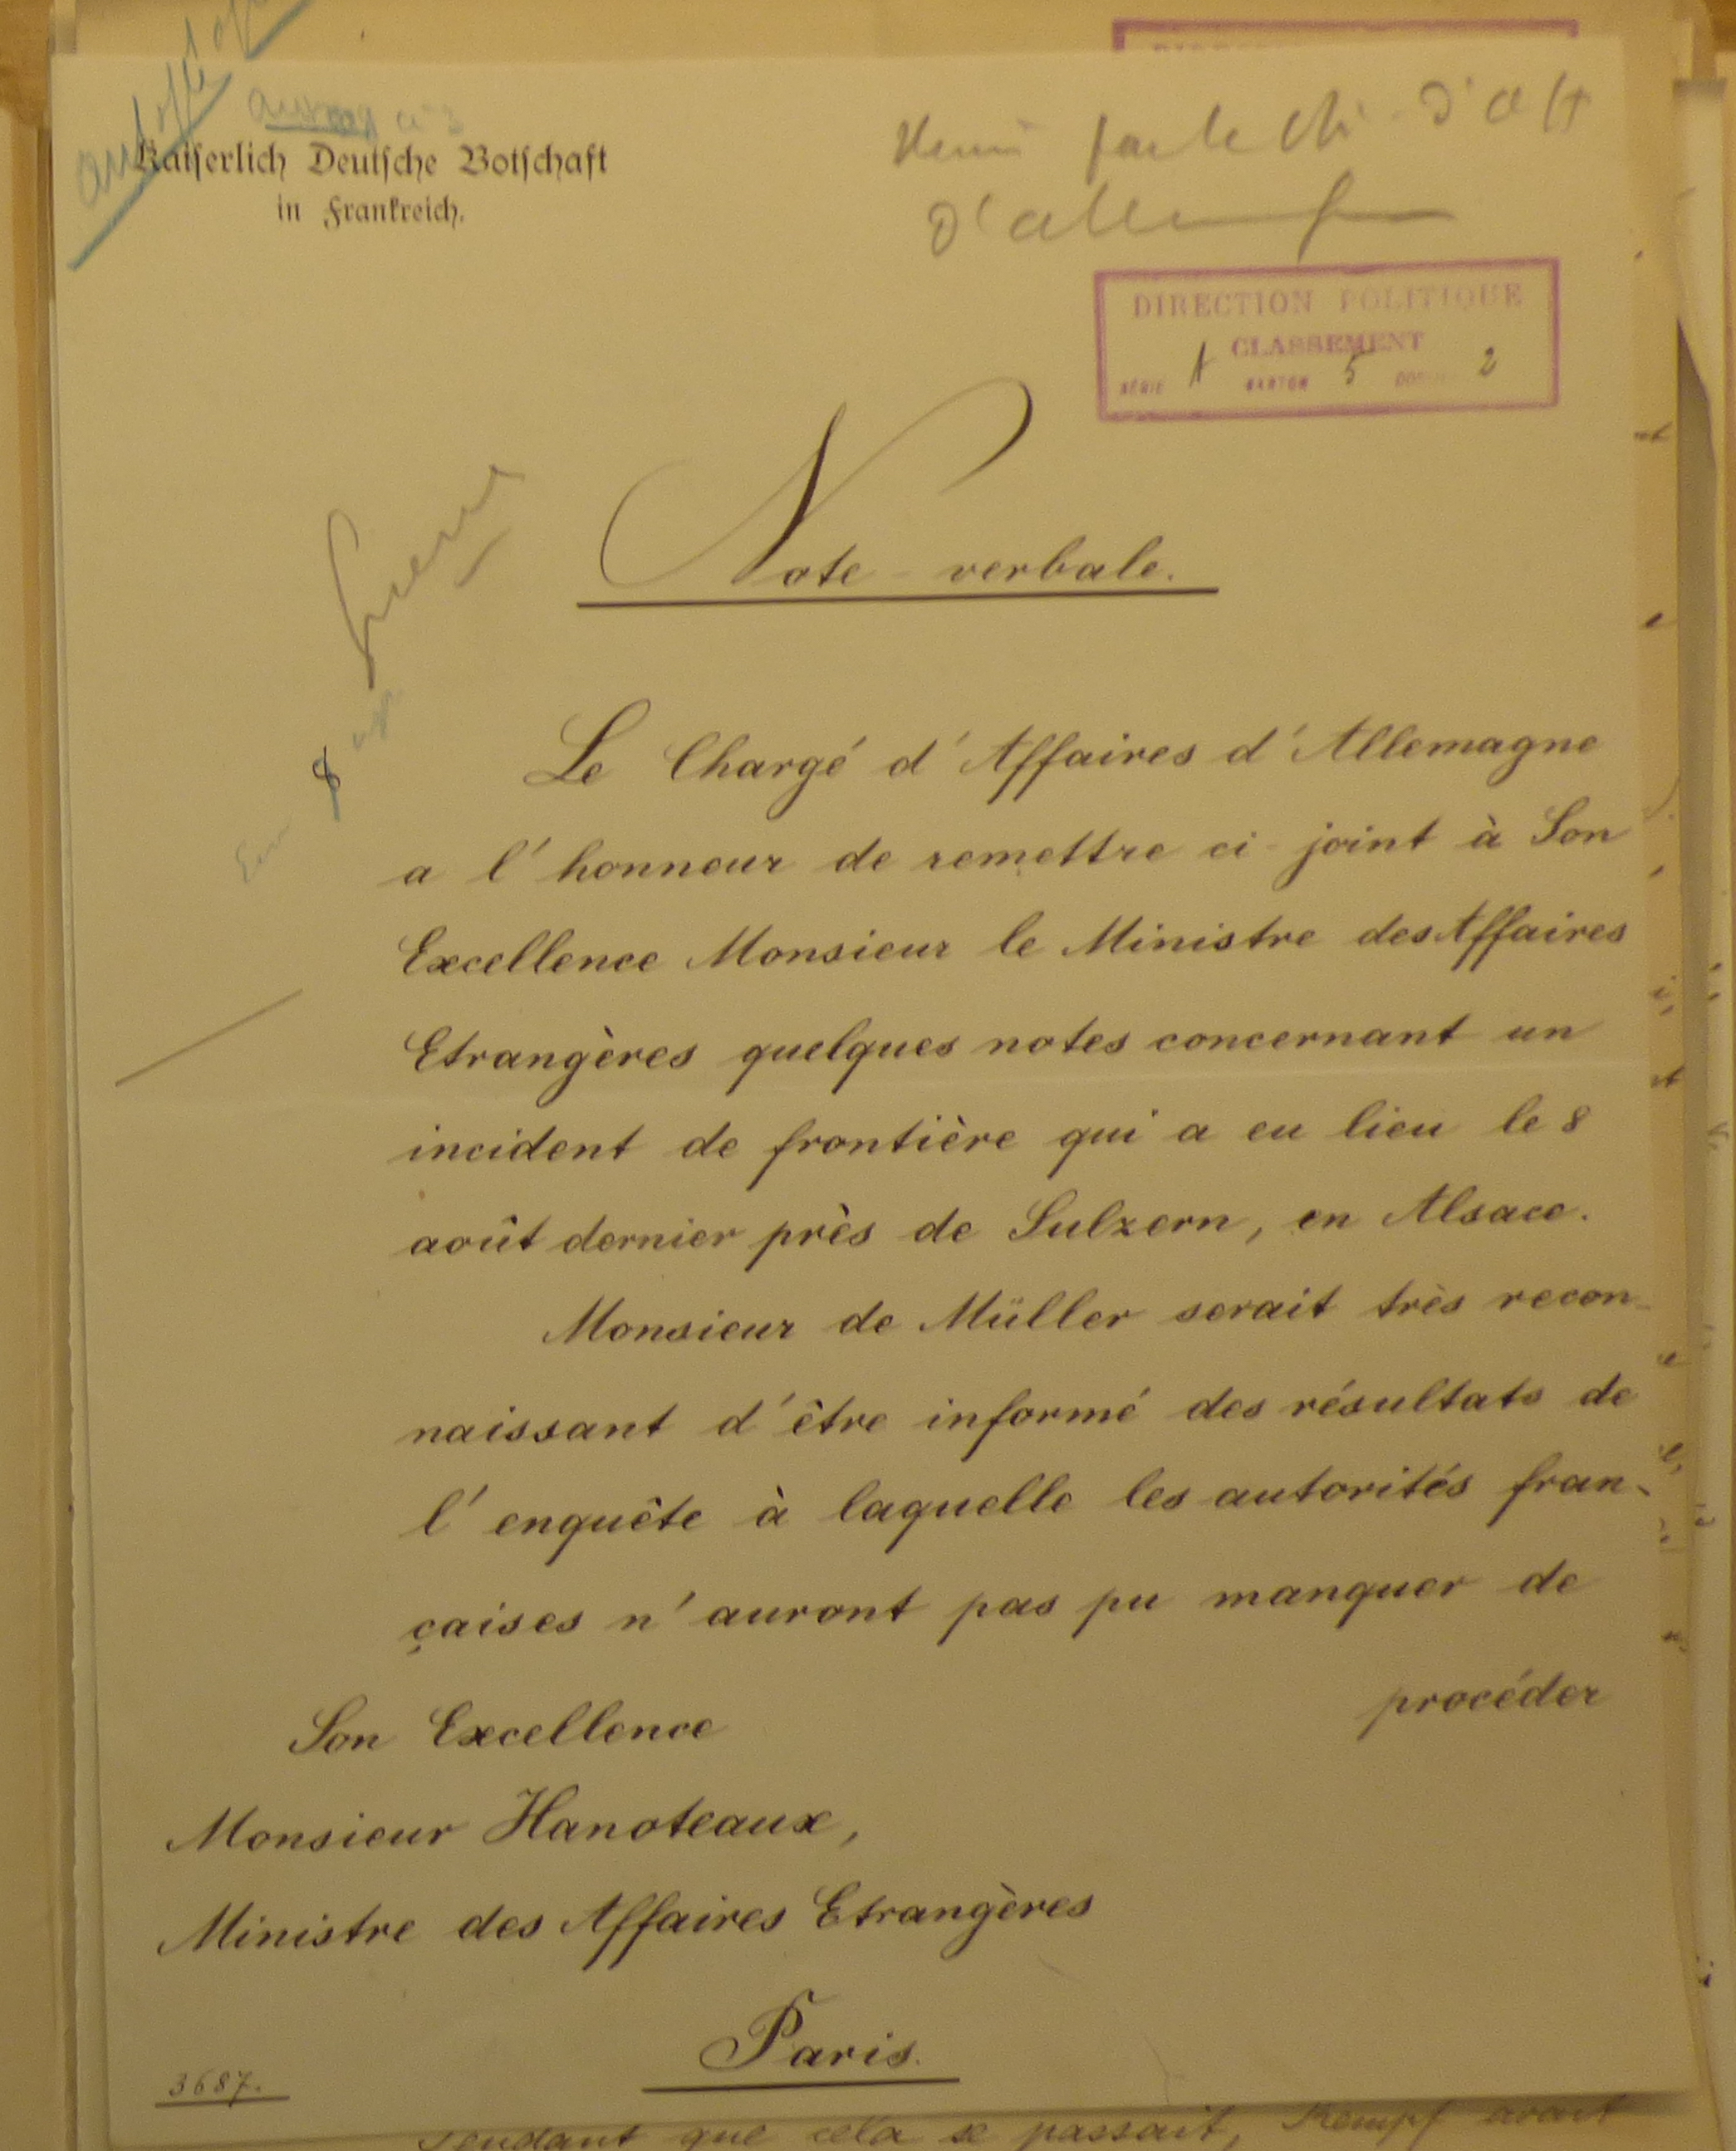 Kaiserlich Deutsche Botschaft
in Frankreich.
Remis par le Ch. d'Aff
d'Allemagne
DIRECTION POLITIQUE
CLASSEMENT
SÉRIE A CARTON 5 DOSSIER 2
Note-verbale.
Guerre
Le Chargé d'Affaires d'Allemagne
a l'honneur de remettre ci-joint à Son
Excellence Monsieur le Ministre des Affaires
Etrangères quelques notes concernant un
incident de frontière qui a eu lieu le 8
août dernier près de Sulzern, en Alsace.
Monsieur de Müller serait très recon-
naissant d'être informé des résultats de
l'enquête à laquelle les autorités fran-
çaises n'auront pas pu manquer de
procéder
Son Excellence
Monsieur Hanoteaux,
Ministre des Affaires Etrangères
Paris.
3687.
Pendant que cela se passait, Kempf avait